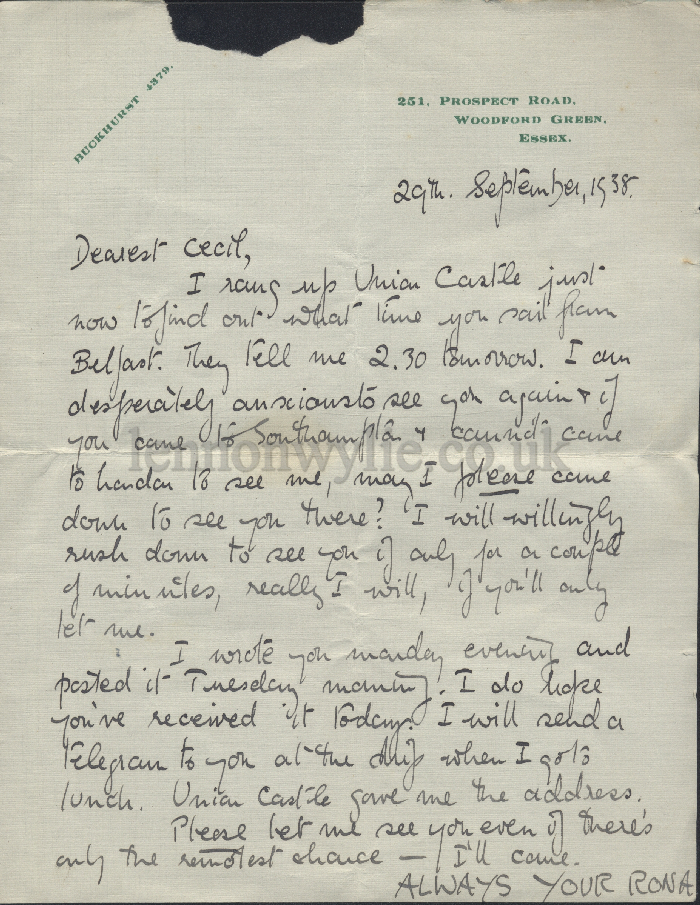 BUCKHURST 4379.
251, PROSPECT ROAD,
WOODFORD GREEN,
ESSEX.
29th. September, 1938.
Dearest Cecil,
I rang up Union Castle just
now to find out what time you sail from
Belfast. They tell me 2.30 tomorrow. I am
desperately anxious to see you again & if
you come to Southampton & cannot come
to London to see me, may I please come
down to see you there? I will willingly
rush down to see you if only for a couple
of minutes, really I will, if you'll only
let me.
I wrote you monday evening and
posted it Tuesday morning. I do hope
you've received it today. I will send a
telegram to you at the ship when I go to
lunch. Union Castle gave me the address.
Please let me see you even if there's
only the remotest chance — I'll come.
ALWAYS YOUR RONA
lennonwylie.co.uk